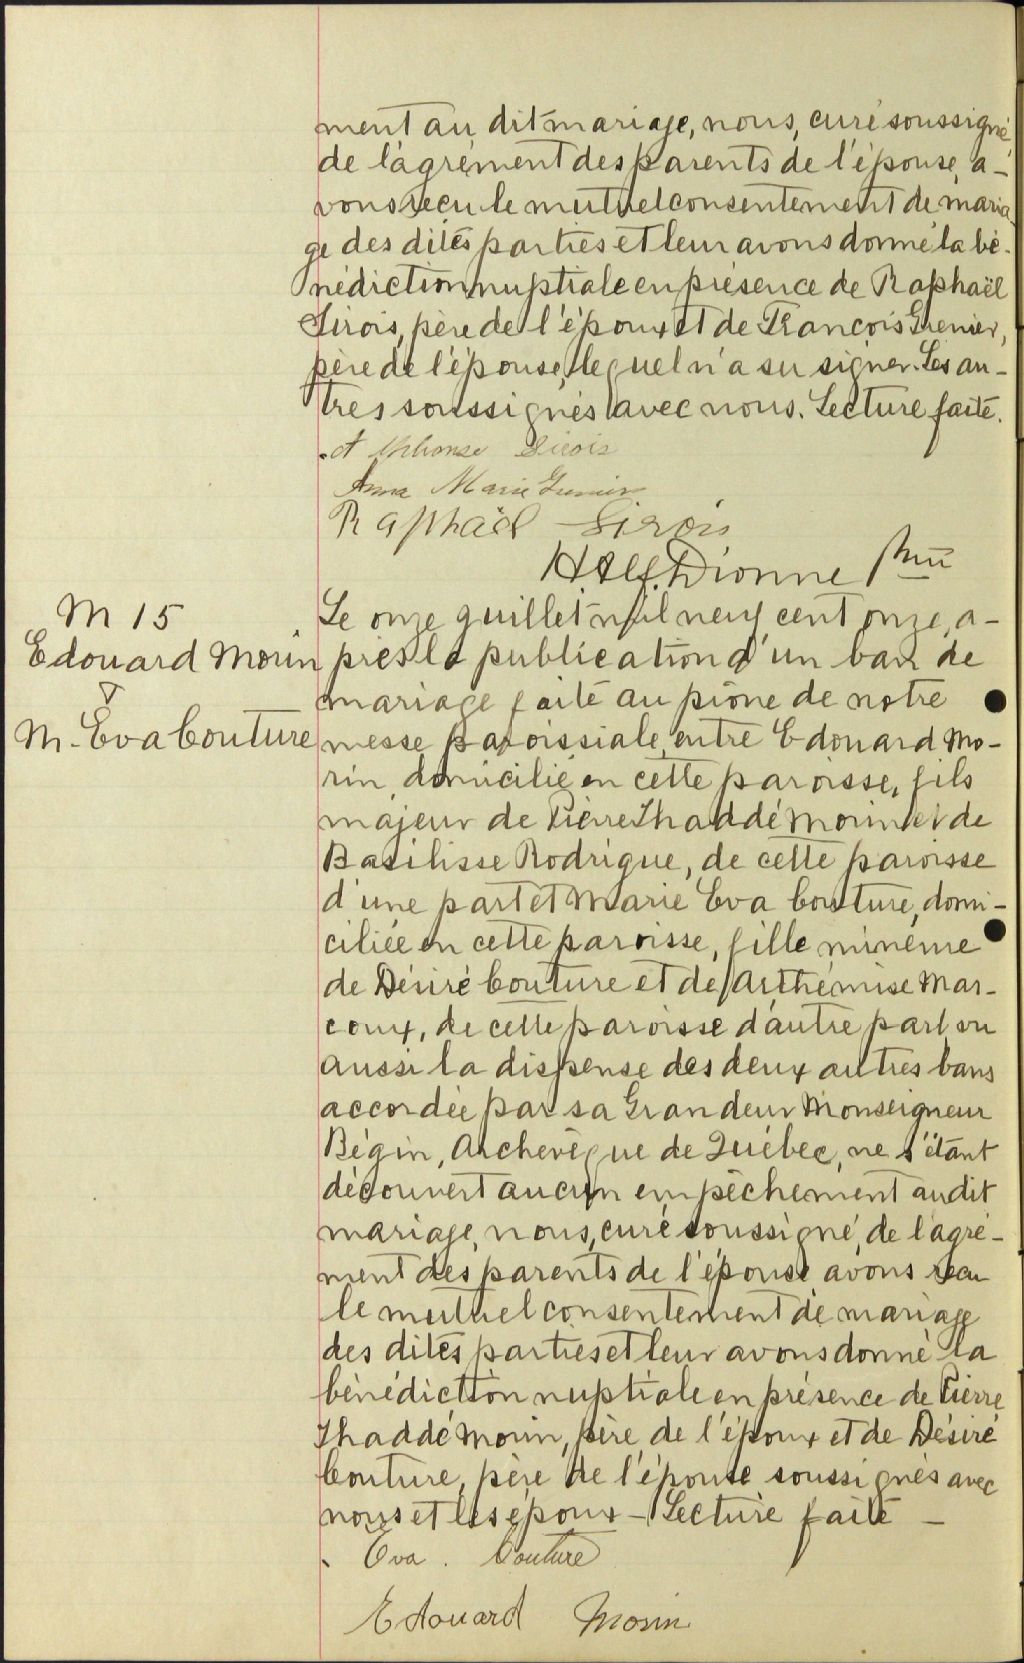 ment au dit mariage, nous, curé soussigné,
de l'agrément des parents de l'épouse, a-
vons reçu le mutuel consentement de maria
ge des dites parties et leur avons donné la bé-
nédiction nuptiale en présence de Raphaël
Sirois, père de l'époux et de François Grenier,
père de l'épouse, lequel n'a su signer. Les au-
tres soussignés avec nous. Lecture faite.
Alphonse Sirois
Anna Marie Grenier
Raphaël Sirois
H Alf. Dionne Ptre
M 15
Edouard Morin
&
M. Eva Couture
Le onze juillet mil neuf cent onze, a-
près la publication d'un ban de
mariage faite au prône de notre
messe paroissiale, entre Edouard Mo-
rin, domicilié en cette paroisse, fils
majeur de Pierre Thaddé Morin et de
Basilisse Rodrigue, de cette paroisse
d'une part et Marie Eva Couture, domi-
ciliée en cette paroisse, fille minéure
de Désiré Couture et de Arthémise Mar-
coux, de cette paroisse d'autre part vu
aussi la dispense des deux autres bans
accordée par sa Grandeur Monseigneur
Bégin, Archevêque de Québec, ne s'étant
découvert aucun empêchement au dit
mariage, nous, curé soussigné, de l'agré-
ment des parents de l'épouse avons reçu
le mutuel consentement de mariage
des dites parties et leur avons donné la
bénédiction nuptiale en présence de Pierre
Thaddé Morin, père de l'époux et de Désiré
Couture, père de l'épouse soussignés avec
nous et les époux - Lecture faite -
Eva. Couture
Edouard Morin